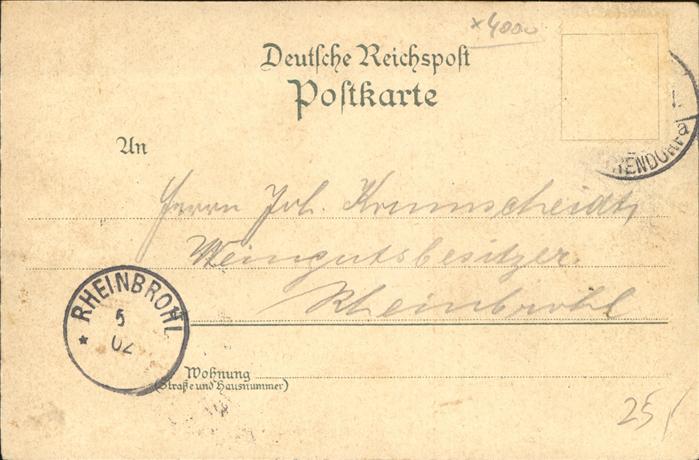 x4000
Deutsche Reichspost
Postkarte
An
Herrn Joh. Krumscheidt,
Weingutsbesitzer
Rheinbrohl
* RHEINBROHL
5
02
Wohnung
(Straße und Hausnummer)
25